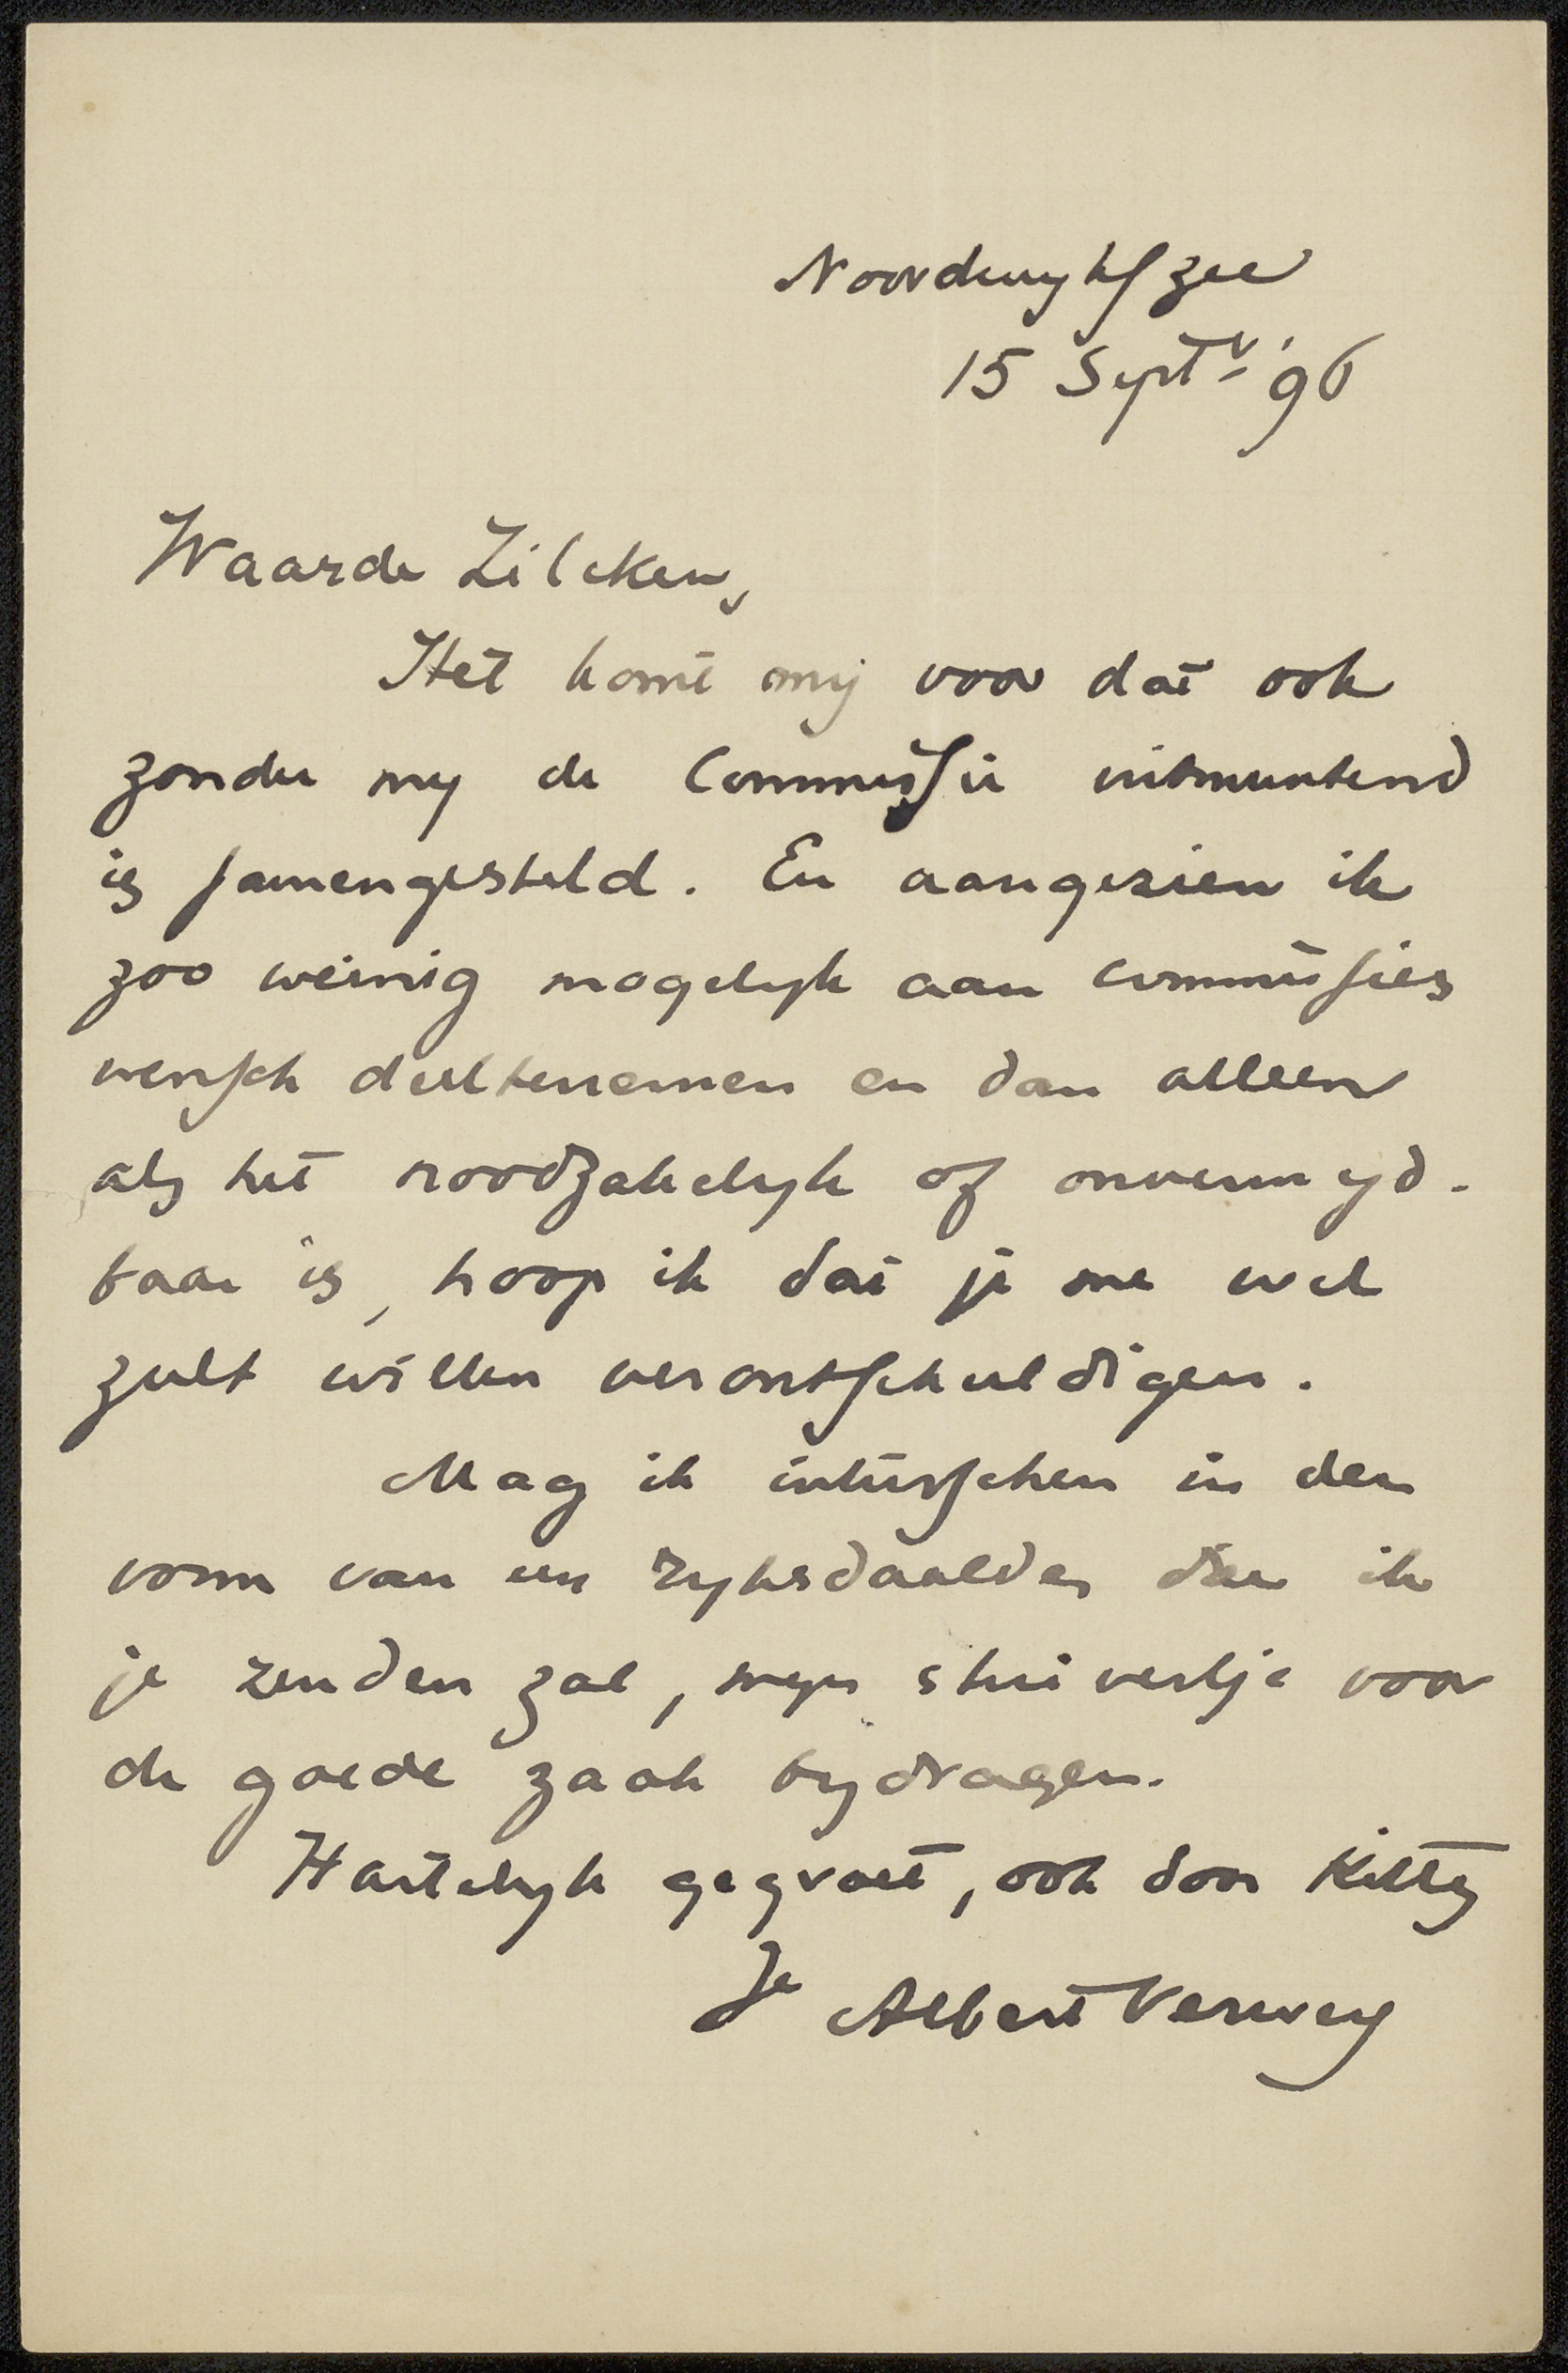 Noordwyk a/ zee
15 Septr '96
Waarde Zilcken,
Het komt mij voor dat ook
zonder my de Commissie uitmuntend
is samengesteld. En aangezien ik
zoo weinig mogelyk aan commissies
wensch deeltenemen en dan alleen
als het noodzakelyk of onvermyd-
baar is, hoop ik dat je me wel
zult willen verontschuldigen.
Mag ik intusschen in den
vorm van een ryksdaalder dien ik
je zenden zal, myn stuivertje voor
de goede zaak bydragen.
Hartelyk gegroet, ook door Kitty
Je Albert Verwey